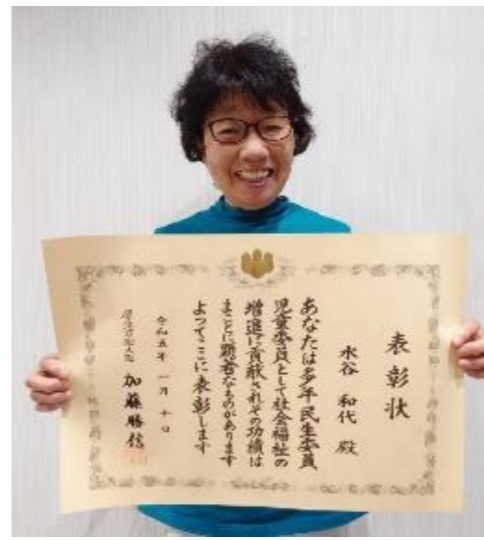 表彰状
水谷 和代 殿
あなたは多年民生委員
児童委員として社会福祉の
増進に貢献されその功績は
まことに顕著なものがあります
よってここに表彰します
令和五年一月十日
厚生労働大臣 加藤勝信